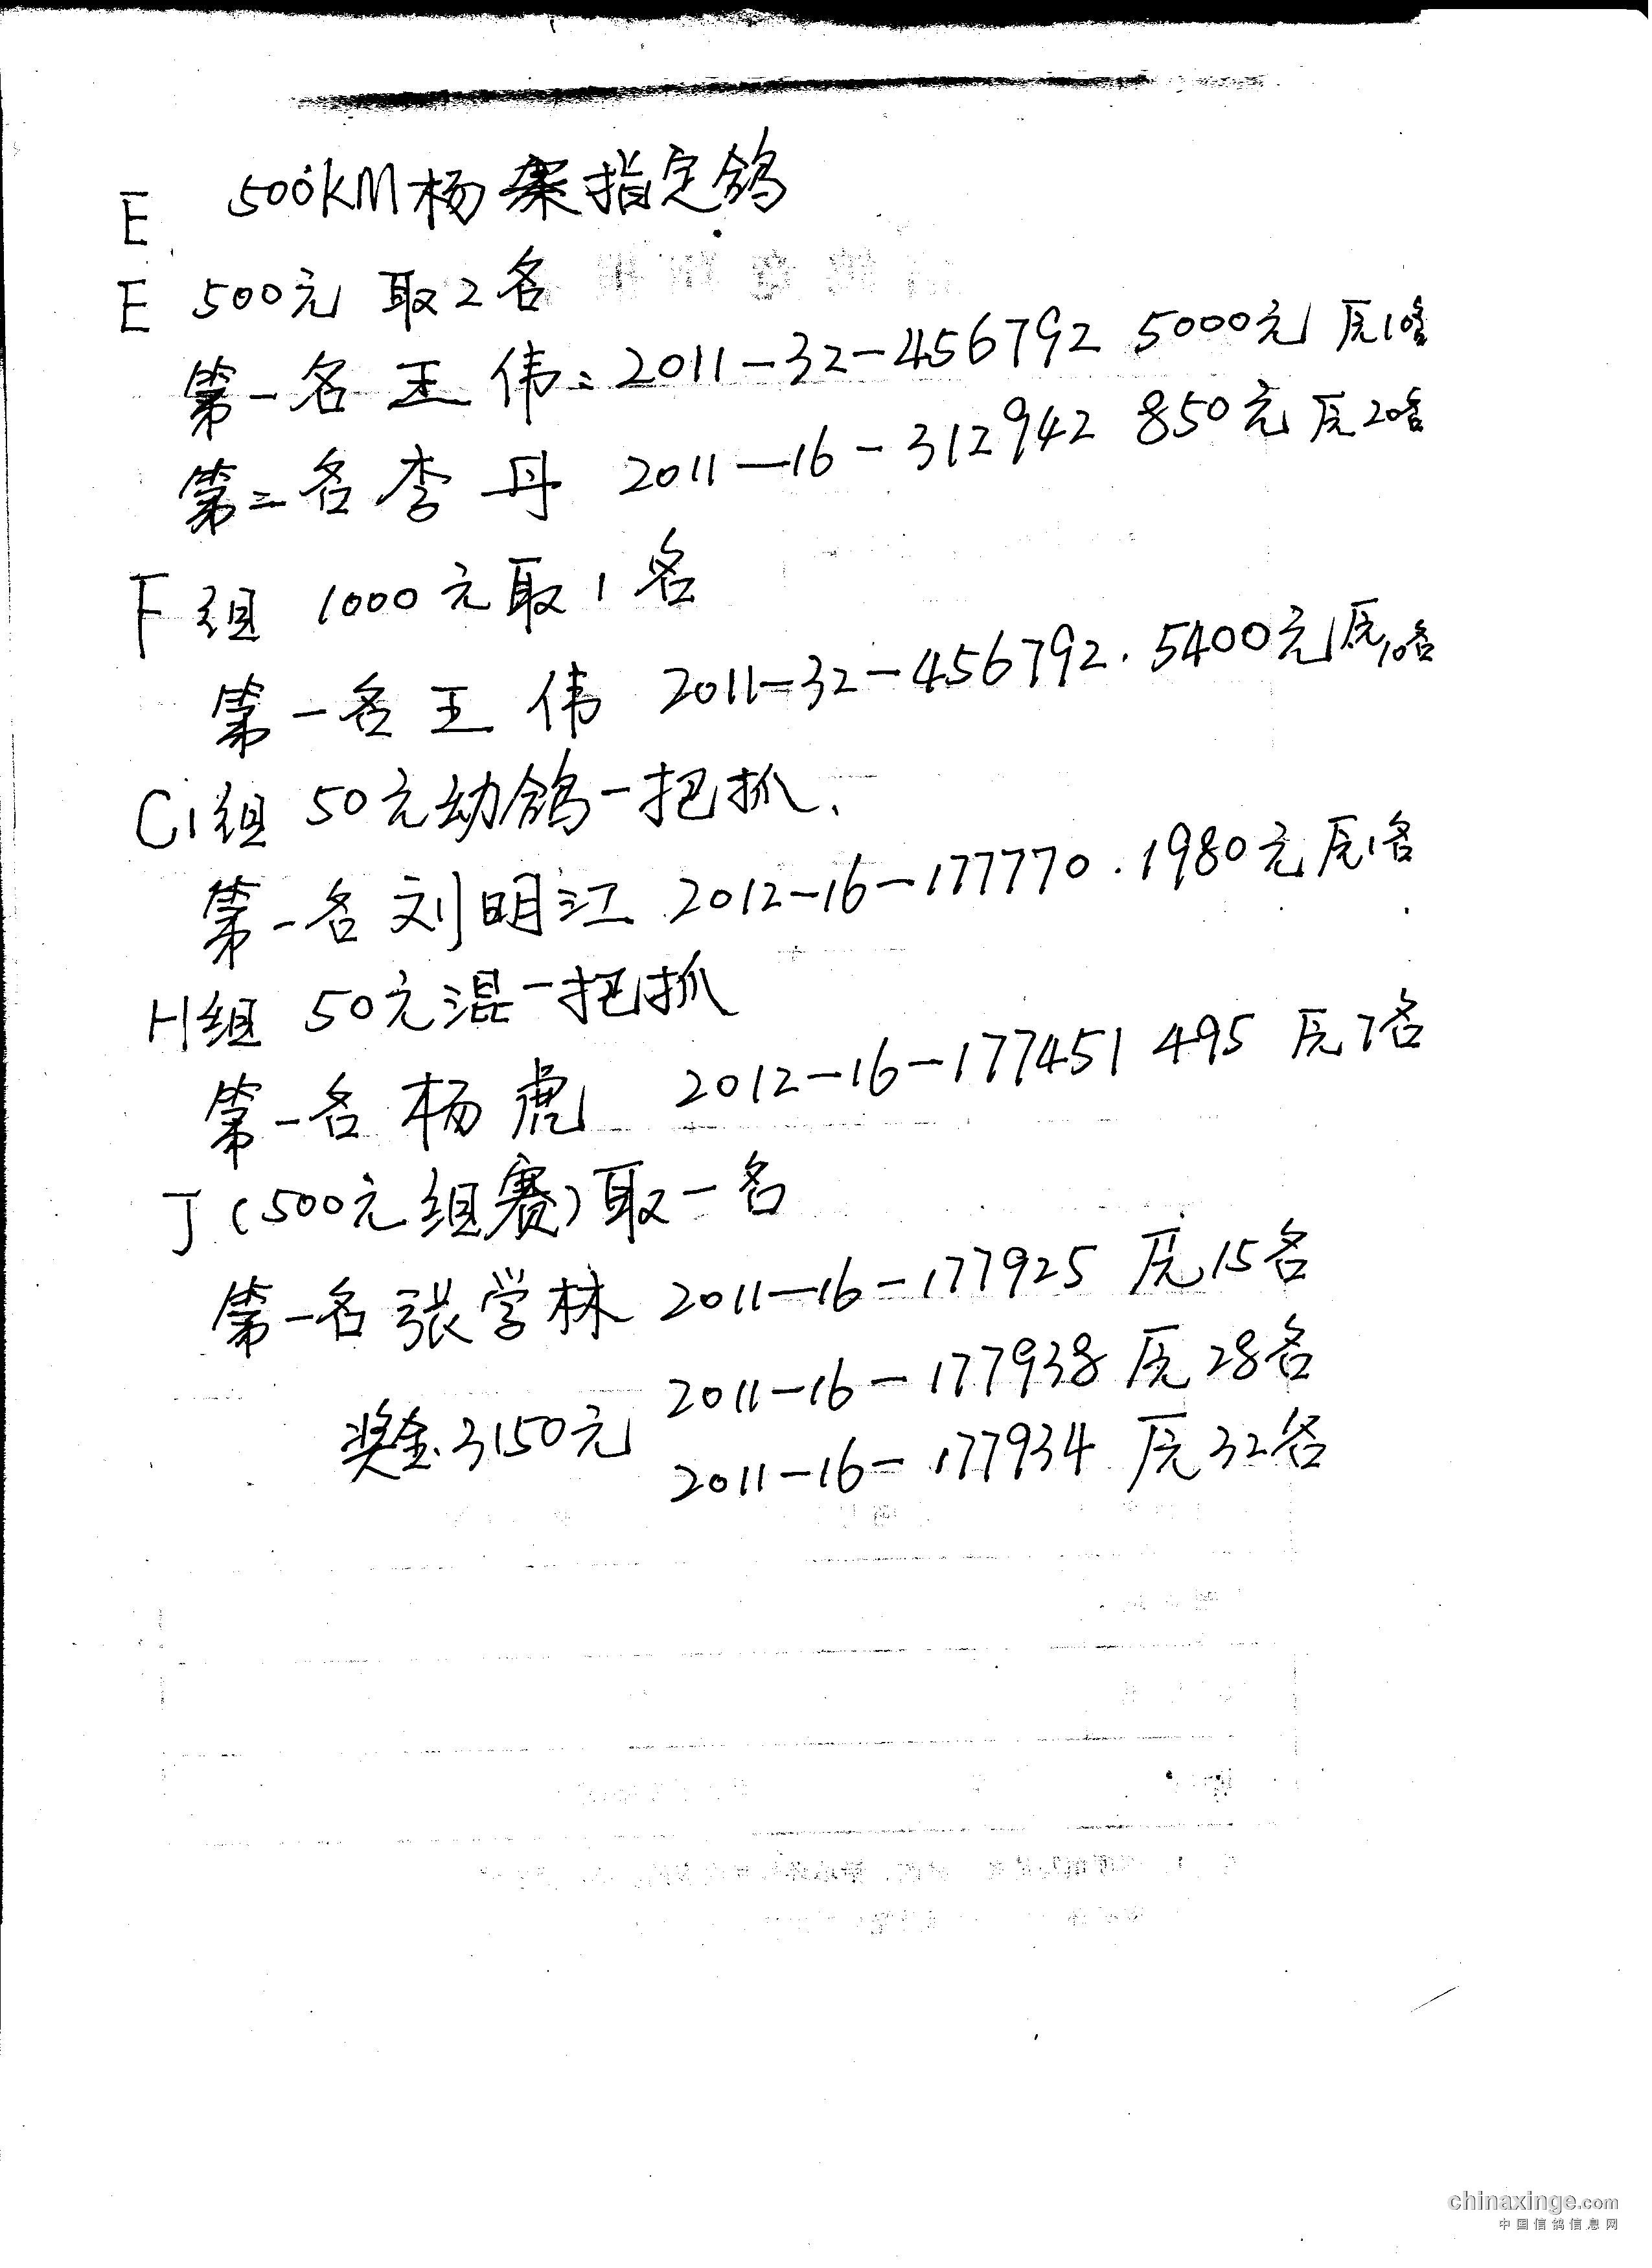 E 500KM杨寨指定鸽
E 500元 取2名
第一名 王 伟: 2011-32-456792 5000元 原10名
第二名 李 丹 2011-16-312942 850元 原20名
F组 1000元取1名
第一名 王 伟 2011-32-456792. 5400元 原10名
C1组 50元幼鸽一把抓、
第一名 刘明江 2012-16-177770. 1980元 原1名
H组 50元混一把抓
第一名 杨 虎 2012-16-177451 495 原7名
J(500元组赛)取一名
第一名 张学林 2011-16-177925 原15名
2011-16-177938 原28名
奖金.3150元
2011-16-177934 原32名
chinaxinge.com
中国信鸽信息网